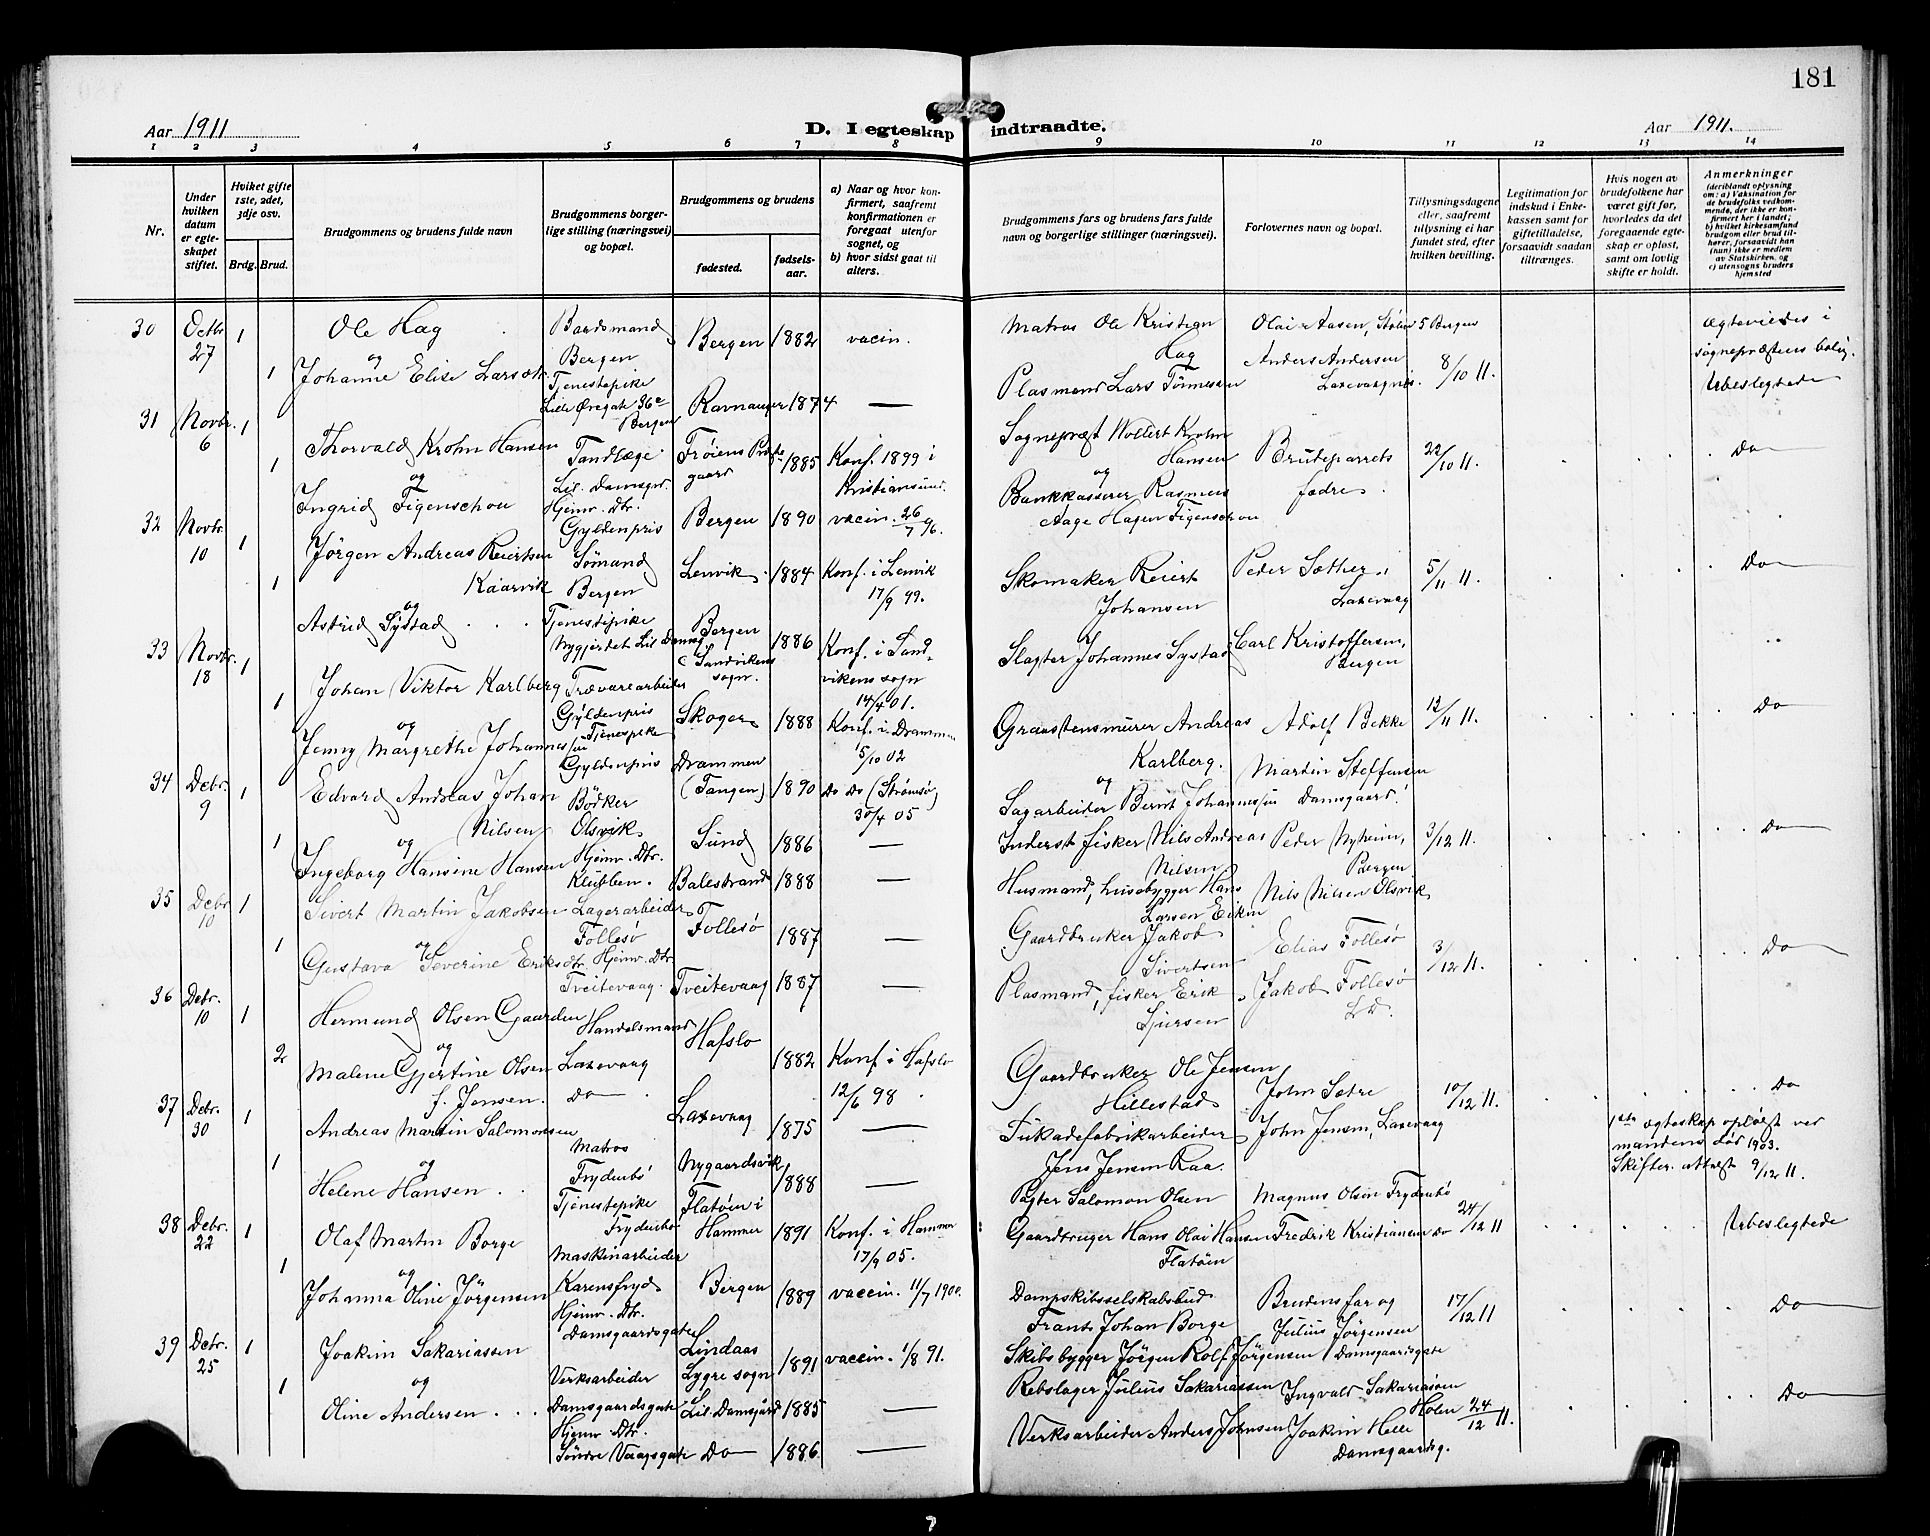 181
Aar 1911
D. I egteskap indtraadte.
Aar 1911.
1 2 3 4 5 6 7 8 9 10 11 12 13 14
Nr.
Under hvilken datum er egte-skapet stiftet.
Hviket gifte 1ste, 2det, 3dje osv.
Brdg. Brud.
Brudgommens og brudens fulde navn
Brudgommens borger-lige stilling (næringsvei) og bopæl.
Brudgommens og brudens
fødested.
fødsels-aar.
a) Naar og hvor kon-firmert, saafremt konfirmationen er foregaat utenfor sognet, og
b) hvor sidst gaat til alters.
Brudgommens fars og brudens fars fulde navn og borgerlige stillinger (næringsvei).
Forlovernes navn og bopæl.
Tillysningsdagene eller, saafremt tillysning ei har fundet sted, efter hvilken bevilling.
Legitimation for indskud i Enke-kassen samt for giftetilladelse, forsaavidt saadan tiltrænges.
Hvis nogen av brudefolkene har været gift før, hvorledes da det foregaaende egte-skap er opløst, samt om lovlig skifte er holdt.
Anmerkninger
(deriblandt oplysning om: a) Vaksination for de brudefolks vedkom-mende, der ikke er kon-firmert her i landet; b) hvilket kirkesamfund brudgom eller brud til-hører, forsaavidt han (hun) ikke er medlem av Statskirken, og c) utensogns bruders hjemsted
30 Octbr. 27 1
Ole Hag
Baadsmand Bergen
Bergen 1882 vacin.
Matros Ole Kristian Hag
Olai Aasen, Stølen 5 Bergen
8/10 11.
Ægteviedes i sognepræstens bolig.
Ubeslegtede
og
1 Johanne Elise Larsdtr.
Tjenestepike
Lille Øregate 36a Bergen
Ravnanger 1874 —
Plasmand Lars Tønnesen
Anders Andersen Laxevaagnes.
31 Novbr. 6 1
Thorvald Krohn Hansen
Tandlæge
Lil. Damsgrd.
Frøiens Præstegaard 1885
Konf. 1899 i Kristiansund.
Sognepræst Wollert Krohn Hansen
Brudeparrets fædre.
22/10 11.
Do
og
1 Ingrid Figenschou
Hjemv. Dtr.
Gyldenpris
Bergen 1890 vacin. 26/7 96.
og
Bankkasserer Rasmus Aage Hagen Figenschou
32 Novbr. 10 1
Jørgen Andreas Reiertsen Kaarvik
Sømand Bergen
Lenvik 1884 Konf. i Lenvik 17/9 99.
Skomaker Reiert Johansen
Peder Sæther, Laxevaag
5/11 11.
Do
og
1 Astrid Systad
Tjenestepike
Nygjerdet Lil Damsg
Bergen Sandvikens sogn. 1886
Konf. i Sandvikens sogn 14/4 01.
Slagter Johannes Systad
Carl Kristoffersen, Bergen
33 Novbr. 18 1
Johan Viktor Karlberg
Trævarearbeider
Gyldenpris
Skoger 1888 Konf. i Drammen 15/10 02
Graastensmurer Andreas Karlberg.
Adolf Bekke
12/11 11.
Do
og
1 Jenny Margrethe Johannessen
Tjenespike
Gyldenpris
Drammen (Tangen) 1890 Do Do (Strømsø) 30/4 05
og
Sagarbeider Bernt Johannessen
Martin Steffensen Damsgaard.
34 Debr. 9 1
Edvard Andreas Johan Nilsen
Bödker Olsvik
Sund 1886 —
Inderst fisker Nils Andreas Nilsen
Peder Nyheim, Bergen
3/12 11.
Do
og
1 Ingeborg Hansine Hansen
Hjemv. Dtr.
Balestrand 1888 —
Husmand, husebygger Hans Larsen Eiken
Nils Nilsen Olsvik
35 Debr 10 1
Sivert Martin Jakobsen
Lagerarbeider Follesø
Follesø 1887 —
Gaardbruker Jakob Sivertsen
Elias Follesø
3/12 11.
Do
og
1 Gustava Severine Eriksdtr.
Hjemv. Dtr.
Tveitevaag.
Tveitevaag 1887 —
Plasmand, fisker Erik Sjursen
Jakob Follesø
36 Debr. 10 1
Hermund Olsen Gaarden
Handelsmand Laxevaag
Hafslo 1882 Konf. i Hafslo 12/6 98.
Gaardbruker Ole Jensen Hillestad
John Sætre
10/12 11.
Do
og
2 Malene Gjertine Olsen f. Jensen.
Do
Laxevaag 1875 —
Jens Jensen Raa.
John Jensen, Laxevaag
1ste ægteskap opløst ved mandens død 1903.
Skifte. attest 9/12 11.
37 Debr. 30 1
Andreas Martin Salomonsen
Matros Frydenbø
Nygaardsvik,
Pagter Salomon Olsen
Magnus Olsen Frydenbø
24/12 11
Ubeslegtede
og
1 Helene Hansen
Tjenestepike Frydenbø
Flatøen i Hammer 1888 —
1891 Konf. i Hammer 17/9 05.
Gaardbruger Hans Olai Hansen Flatøen
Fredrik Kristiansen Do
38 Debr. 22 1
Olaf Martin Borge
Maskinarbeider
Karensfryd
Bergen 1889 vaccin. 11/7 1900.
Dampskibsselskabsbud Frants Johan Borge
Brudens far og Julius Jørgensen
17/12 11
Do
og
1 Johanna Oline Jörgensen
Hjemv. Dtr.
Damsgaardsgate
Lindaas Lygre sogn 1891 vaccin. 1/8 91.
Skibsbygger Jørgen Rolf Jørgensen
Damsgaardsgate
39 Debr. 25 1
Joakim Sakariassen
Verksarbeider
Damsgaardsgate
Lil. Damsgård 1885 —
Rebslager Julius Sakariassen
Ingvald Sakariassen Holen
24/12 11.
Do
og
1 Oline Andersen
Hjemv. Dtr.
Søndre Vaagsgate
Do 1886. —
Verksarbeider Anders Johnsen
Joakim Helle Damsgaardsg.